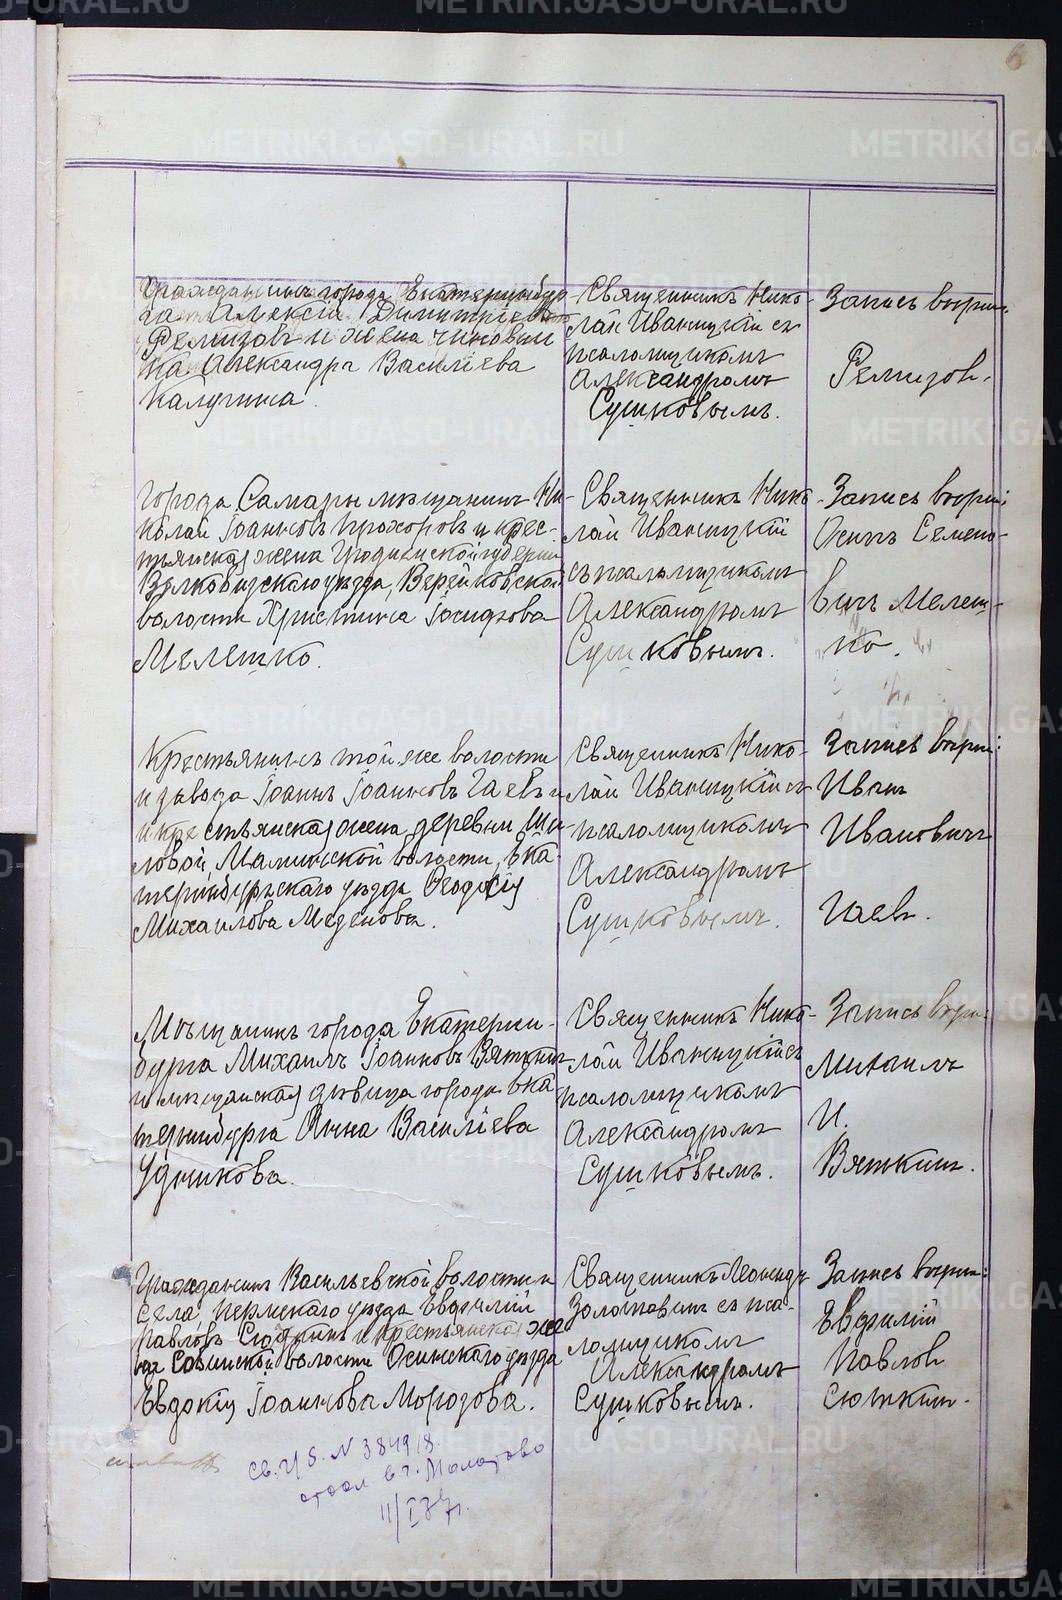 6
Гражданинъ города Екатеринбур-
га Алексій Димитріевъ
Ремизовъ и жена чиновни
ка Александра Василіева
Калугина.
Священникъ Нико-
лай Иваницкій съ
псаломщикомъ
Александромъ
Сушковымъ.
Запись вѣрна.
Ремизов.
Города Самары мѣщанинъ Ни-
колай Іоанновъ Прохоровъ и крес-
тьянская жена Гродненской губерніи
Волковыскаго уѣзда, Верейковской
волости Христина Іосифова
Мелешко.
Священникъ Нико-
лай Иваницкій
съ псаломщикомъ
Александромъ
Сушковымъ.
Запись вѣрна:
Осипъ Семено-
вичъ Мелеш-
ко.
Крестьянинъ той же волости
и завода Іоаннъ Іоанновъ Гаевъ и
и крестьянская жена деревни Ши-
ловой, Маминской волости, Ека-
теринбургскаго уѣзда Ѳеодосія
Михаилова Меденова.
Священникъ Нико-
лай Иваницкій съ
псаломщикомъ
Александромъ
Сушковымъ.
Запись вѣрна:
Иванъ
Ивановичъ
Гаевъ.
Мѣщанинъ города Екатерин-
бурга Михаилъ Іоанновъ Вяткинъ
и мѣщанская дѣвица города Ека
теринбурга Анна Василіева
Удникова.
Священникъ Нико-
лай Иваницкій съ
псаломщикомъ
Александромъ
Сушковымъ.
Запись вѣрн.
Михаилъ
И.
Вяткин.
Гражданинъ Васильевской волости и
села, Пермскаго уѣзда Евфимій
Павловъ Сюткинъ и крестьянская же
на Савинской волости Осинскаго уѣзда
Евдокія Іоаннова Морозова.
Священникъ Леонидъ
Золотавинъ съ пса-
ломщикомъ
Александромъ
Сушковымъ.
Запись вѣрна:
Евфимій
Павлов
Сюткин.
Св. г/б. N 384918.
в г. Молотово
11/I 37 г.
METRIKI.GASO-URAL.RU